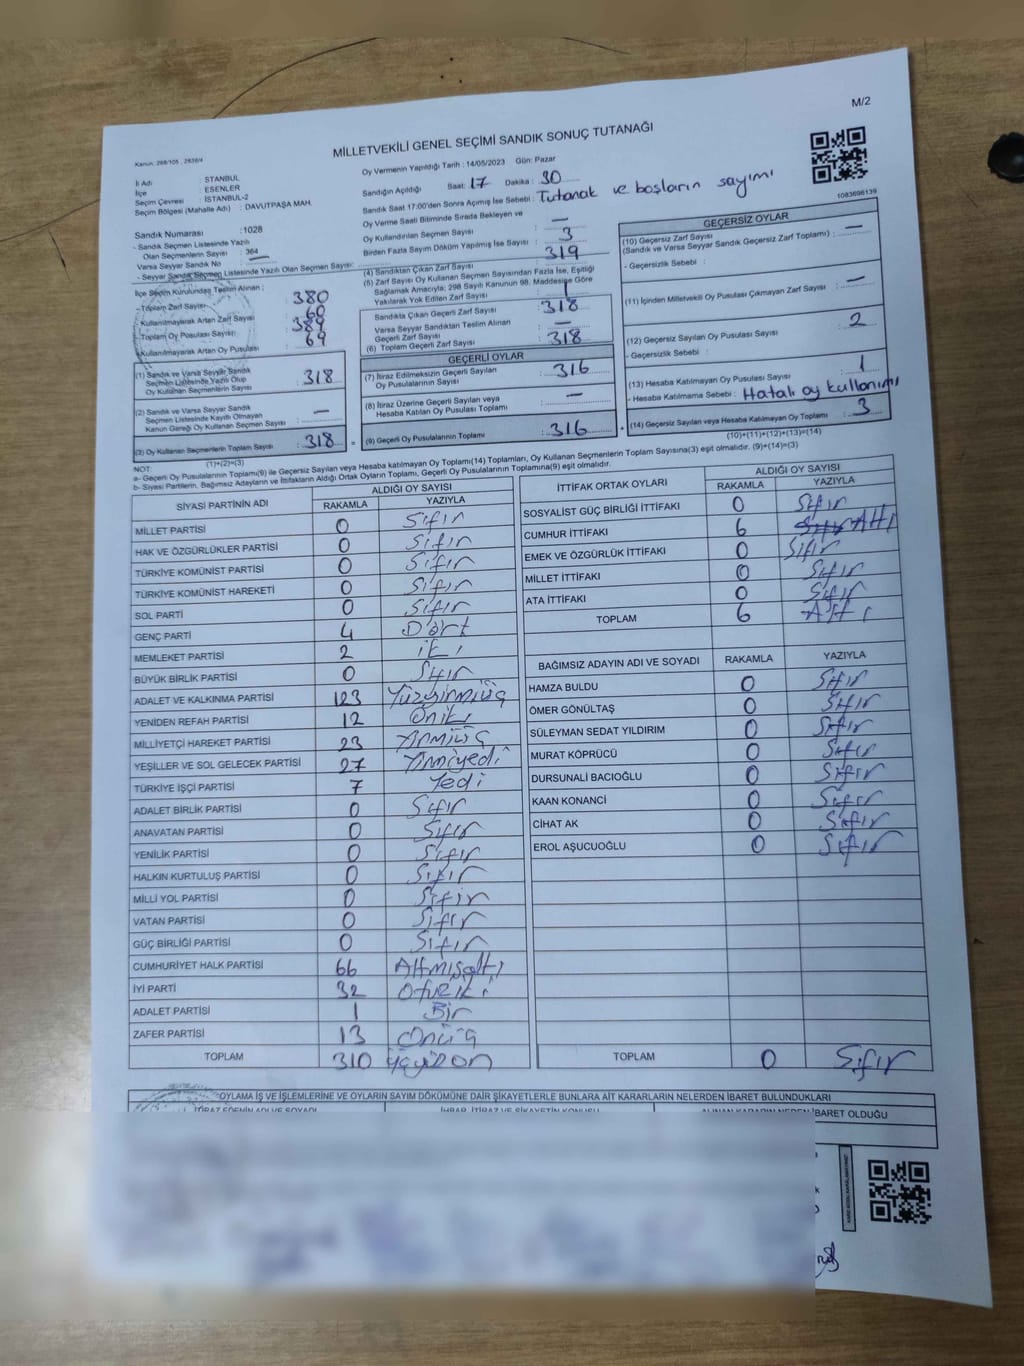 M/2
MİLLETVEKİLİ GENEL SEÇİMİ SANDIK SONUÇ TUTANAĞI
Kanun: 298/105, 2839/4
İl Adı : STANBUL
İlçe : ESENLER
Seçim Çevresi : İSTANBUL-2
Seçim Bölgesi (Mahalle Adı) : DAVUTPAŞA MAH.
Oy Vermenin Yapıldığı Tarih : 14/05/2023 Gün: Pazar
Sandığın Açıldığı Saat: 17 Dakika : 30
Sandık Saat 17:00'den Sonra Açılmış İse Sebebi : Tutanak ve boşların sayımı
1083696139
Sandık Numarası : 1028
- Sandık Seçmen Listesinde Yazılı
Olan Seçmenlerin Sayısı : 364
Varsa Seyyar Sandık No : —
- Seyyar Sandık Seçmen Listesinde Yazılı Olan Seçmen Sayısı:
Oy Verme Saati Bitiminde Sırada Bekleyen ve
Oy Kullandırılan Seçmen Sayısı : —
Birden Fazla Sayım Döküm Yapılmış İse Sayısı : 3
İlçe Seçim Kurulundan Teslim Alınan ;
- Toplam Zarf Sayısı : 380
- Kullanılmayarak Artan Zarf Sayısı : 60
- Toplam Oy Pusulası Sayısı : 389
- Kullanılmayarak Artan Oy Pusulası : 69
(1) Sandık ve Varsa Seyyar Sandık
Seçmen Listesinde Yazılı Olup
Oy Kullanan Seçmenlerin Sayısı : 318
(2) Sandık ve Varsa Seyyar Sandık
Seçmen Listesinde Kayıtlı Olmayan
Kanun Gereği Oy Kullanan Seçmen Sayısı : —
(3) Oy Kullanan Seçmenlerin Toplam Sayısı : 318
(1)+(2)=(3)
(4) Sandıktan Çıkan Zarf Sayısı : 319
(5) Zarf Sayısı Oy Kullanan Seçmen Sayısından Fazla İse, Eşitliği
Sağlamak Amacıyla; 298 Sayılı Kanunun 98. Maddesine Göre
Yakılarak Yok Edilen Zarf Sayısı : 1
Sandıkta Çıkan Geçerli Zarf Sayısı : 318
Varsa Seyyar Sandıktan Teslim Alınan
Geçerli Zarf Sayısı : —
(6) Toplam Geçerli Zarf Sayısı : 318
GEÇERLİ OYLAR
(7) İtiraz Edilmeksizin Geçerli Sayılan
Oy Pusulalarının Sayısı : 316
(8) İtiraz Üzerine Geçerli Sayılan veya
Hesaba Katılan Oy Pusulası Toplamı : —
(9) Geçerli Oy Pusulalarının Toplamı : 316
GEÇERSİZ OYLAR
(10) Geçersiz Zarf Sayısı
(Sandık ve Varsa Seyyar Sandık Geçersiz Zarf Toplamı) : —
- Geçersizlik Sebebi :
(11) İçinden Milletvekili Oy Pusulası Çıkmayan Zarf Sayısı : —
(12) Geçersiz Sayılan Oy Pusulası Sayısı : 2
- Geçersizlik Sebebi :
(13) Hesaba Katılmayan Oy Pusulası Sayısı : 1
- Hesaba Katılmama Sebebi : Hatalı oy kullanımı
(14) Geçersiz Sayılan veya Hesaba Katılmayan Oy Toplamı : 3
(10)+(11)+(12)+(13)=(14)
NOT:
a- Geçerli Oy Pusulalarının Toplamı(9) ile Geçersiz Sayılan veya Hesaba katılmayan Oy Toplamı(14) Toplamları, Oy Kullanan Seçmenlerin Toplam Sayısına(3) eşit olmalıdır. (9)+(14)=(3)
b- Siyasi Partilerin, Bağımsız Adayların ve İttifakların Aldığı Ortak Oyların Toplamı, Geçerli Oy Pusulalarının Toplamına(9) eşit olmalıdır.
SİYASİ PARTİNİN ADI ALDIĞI OY SAYISI
RAKAMLA YAZIYLA
MİLLET PARTİSİ 0 Sıfır
HAK VE ÖZGÜRLÜKLER PARTİSİ 0 Sıfır
TÜRKİYE KOMÜNİST PARTİSİ 0 Sıfır
TÜRKİYE KOMÜNİST HAREKETİ 0 Sıfır
SOL PARTİ 0 Sıfır
GENÇ PARTİ 4 Dört
MEMLEKET PARTİSİ 2 İki
BÜYÜK BİRLİK PARTİSİ 0 Sıfır
ADALET VE KALKINMA PARTİSİ 123 Yüzyirmiüç
YENİDEN REFAH PARTİSİ 12 Oniki
MİLLİYETÇİ HAREKET PARTİSİ 23 Yirmiüç
YEŞİLLER VE SOL GELECEK PARTİSİ 27 Yirmiyedi
TÜRKİYE İŞÇİ PARTİSİ 7 Yedi
ADALET BİRLİK PARTİSİ 0 Sıfır
ANAVATAN PARTİSİ 0 Sıfır
YENİLİK PARTİSİ 0 Sıfır
HALKIN KURTULUŞ PARTİSİ 0 Sıfır
MİLLİ YOL PARTİSİ 0 Sıfır
VATAN PARTİSİ 0 Sıfır
GÜÇ BİRLİĞİ PARTİSİ 0 Sıfır
CUMHURİYET HALK PARTİSİ 66 Altmışaltı
İYİ PARTİ 32 Otuziki
ADALET PARTİSİ 1 Bir
ZAFER PARTİSİ 13 Onüç
TOPLAM 310 Üçyüzon
İTTİFAK ORTAK OYLARI ALDIĞI OY SAYISI
RAKAMLA YAZIYLA
SOSYALİST GÜÇ BİRLİĞİ İTTİFAKI 0 Sıfır
CUMHUR İTTİFAKI 6 Altı
EMEK VE ÖZGÜRLÜK İTTİFAKI 0 Sıfır
MİLLET İTTİFAKI 0 Sıfır
ATA İTTİFAKI 0 Sıfır
TOPLAM 6 Altı
BAĞIMSIZ ADAYIN ADI VE SOYADI RAKAMLA YAZIYLA
HAMZA BULDU 0 Sıfır
ÖMER GÖNÜLTAŞ 0 Sıfır
SÜLEYMAN SEDAT YILDIRIM 0 Sıfır
MURAT KÖPRÜCÜ 0 Sıfır
DURSUNALİ BACIOĞLU 0 Sıfır
KAAN KONANCİ 0 Sıfır
CİHAT AK 0 Sıfır
EROL AŞUCUOĞLU 0 Sıfır
TOPLAM 0 Sıfır
OYLAMA İŞ VE İŞLEMLERİNE VE OYLARIN SAYIM DÖKÜMÜNE DAİR ŞİKAYETLERLE BUNLARA AİT KARARLARIN NELERDEN İBARET BULUNDUKLARI
İTİRAZ EDENİN ADI VE SOYADI İHBAR, İTİRAZ VE ŞİKAYETİN KONUSU ALINAN KARARIN NEDEN İBARET OLDUĞU